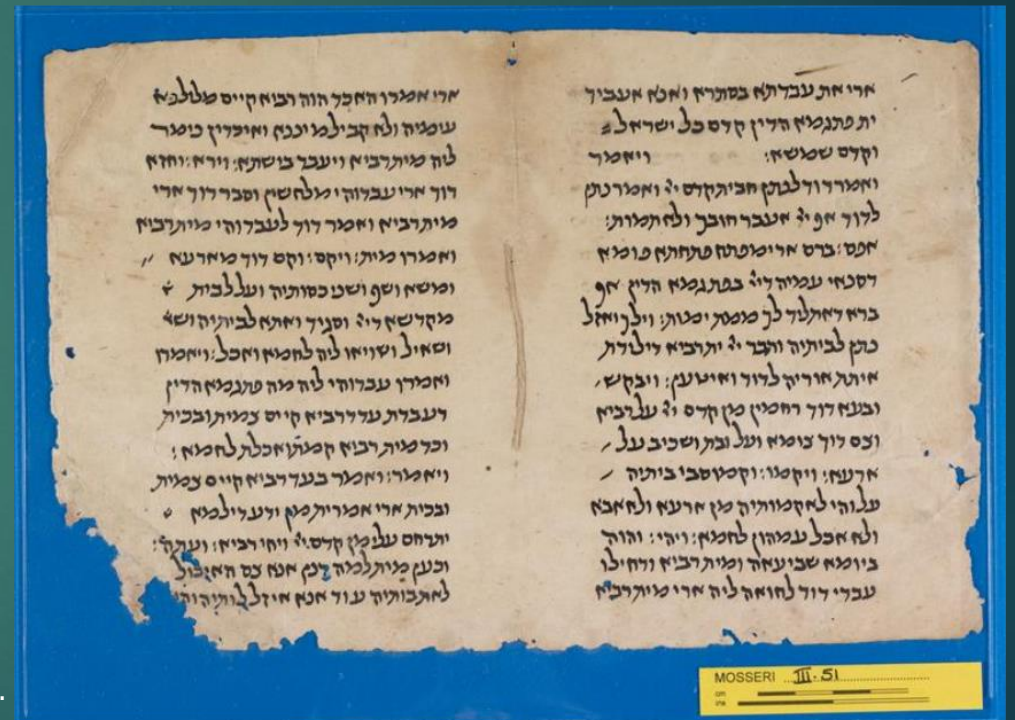 ארי את עבדתא בסתרא ואנא אעביד
ית פתגמא הדין קדם כל ישראל
וקדם שמשא: ויאמר
ואמר דוד לנתן חבית קדם ייי ואמר נתן
לדוד אף ייי אעבר חובך ולא תמות:
אפס: ברם ארי מפתח פתחתא פומא
דסנאי עמיה דייי בפתגמא הדין אף
ברא דאתליד לך ממת ימות: וילך ואזל
נתן לביתיה ותבר ייי ית רביא דילידת
איתת אוריה לדוד ואיטען: ויבקש
ובעא דוד רחמין מן קדם ייי על רביא
וצם דוד צומא ועל ובת ושכיב על
ארעא: ויקמו: וקמו סבי ביתיה
עלוהי לאקמותיה מן ארעא ולא אבא
ולא אכל עמהון לחמא: ויהי: והוה
ביומא שביעאה ומית רביא ודחילו
עבדי דוד לחואה ליה ארי מית רביא
ארי אמרו הא כד הוה רביא קיים מלילנא
עימיה ולא קביל מיננא ואיכדין נימר
ליה מית רביא ויעבד בישתא: וירא: וחזא
דוד ארי עבדוהי מלחשין וסבר דוד ארי
מית רביא ואמר דוד לעבדוהי מיית רביא
ואמרו מית: ויקם: וקם דוד מארעא
ומשא ושף ושני כסותיה ועל לבית
מקדשא דייי וסגיד ואתא לביתיה
ושאיל ושויאו ליה לחמא ואכל: ויאמרו
ואמרו עבדוהי ליה מה פתגמא הדין
דעבדת עד דרביא קיים צמית ובכית
וכד מית רביא קמת ואכלת לחמא:
ויאמר: ואמר בעד רביא קיים צמית
ובכית ארי אמרית מן ידע דילמא
יתרחם עלי מן קדם ייי ויחי רביא: ועתה:
וכען מית למה דנן אנא צם האיכול
לאתבותיה עוד אנא איזל לותיה
MOSSERI III.51
cm